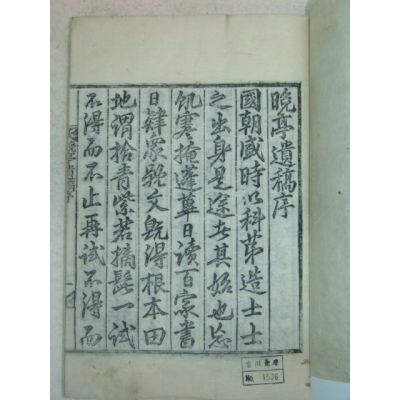 晩亭遺稿序
國朝盛時以科第造士士
之出身是途者其始也忘
飢寒掩蓬蓽日讀百家書
日肆衆難文旣得根本田
地謂拾青紫若摘髭一試
不得而不止再試不得而
晩亭遺稿序
No. 1526